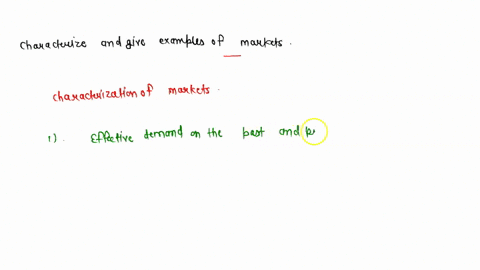 characterize and give examples of markets.
characterization of markets.
1). Effective demand on the past and